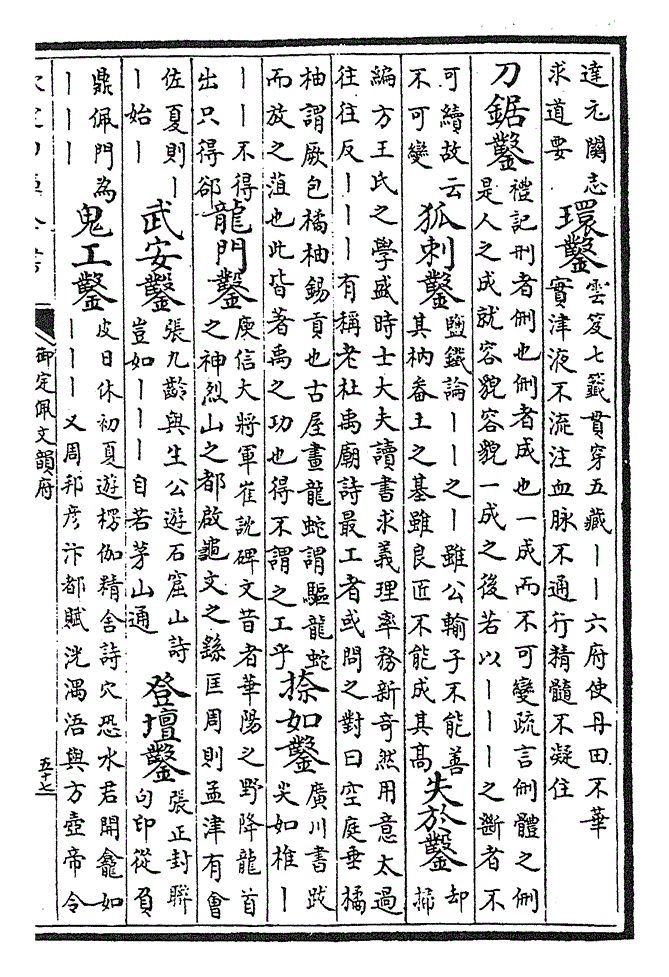 達元關志
求道要
環鑿
雲笈七籤貫穿五藏丨丨六府使丹田不華
實津液不流注血脉不通行精髓不凝住
刀鋸鑿
禮記刑者侀也侀者成也一成而不可變疏言侀體之侀
是人之成就容貌容貌一成之後若以丨丨丨之斷者不
可續故云
不可變
狐刺鑿
鹽鐵論丨丨之丨雖公輸子不能善
其枘畚土之基雖良匠不能成其高
失於鑿
却
掃
編方王氏之學盛時士大夫讀書求義理率務新奇然用意太過
往往反丨丨丨有稱老杜禹廟詩最工者或問之對曰空庭垂橘
柚謂厥包橘柚錫貢也古屋畫龍蛇謂驅龍蛇
而放之菹也此皆著禹之功也得不謂之工乎
捺如鑿
廣川書跋
尖如椎丨
丨丨不得
出只得郤
龍門鑿
庾信大將軍崔說碑文昔者華陽之野降龍首
之神烈山之都啟龜文之繇匡周則孟津有會
佐夏則丨
丨始丨
武安鑿
張九齡與生公遊石窟山詩
豈如丨丨丨自若茅山通
登壇鑿
張正封聯
句印從負
鼎佩門為
丨丨丨
鬼工鑿
皮日休初夏遊楞伽精舍詩穴恐水君開龕如
丨丨丨又周邦彦汴都賦洸湡浯與方壺帝令
御定佩文韻府
五十七